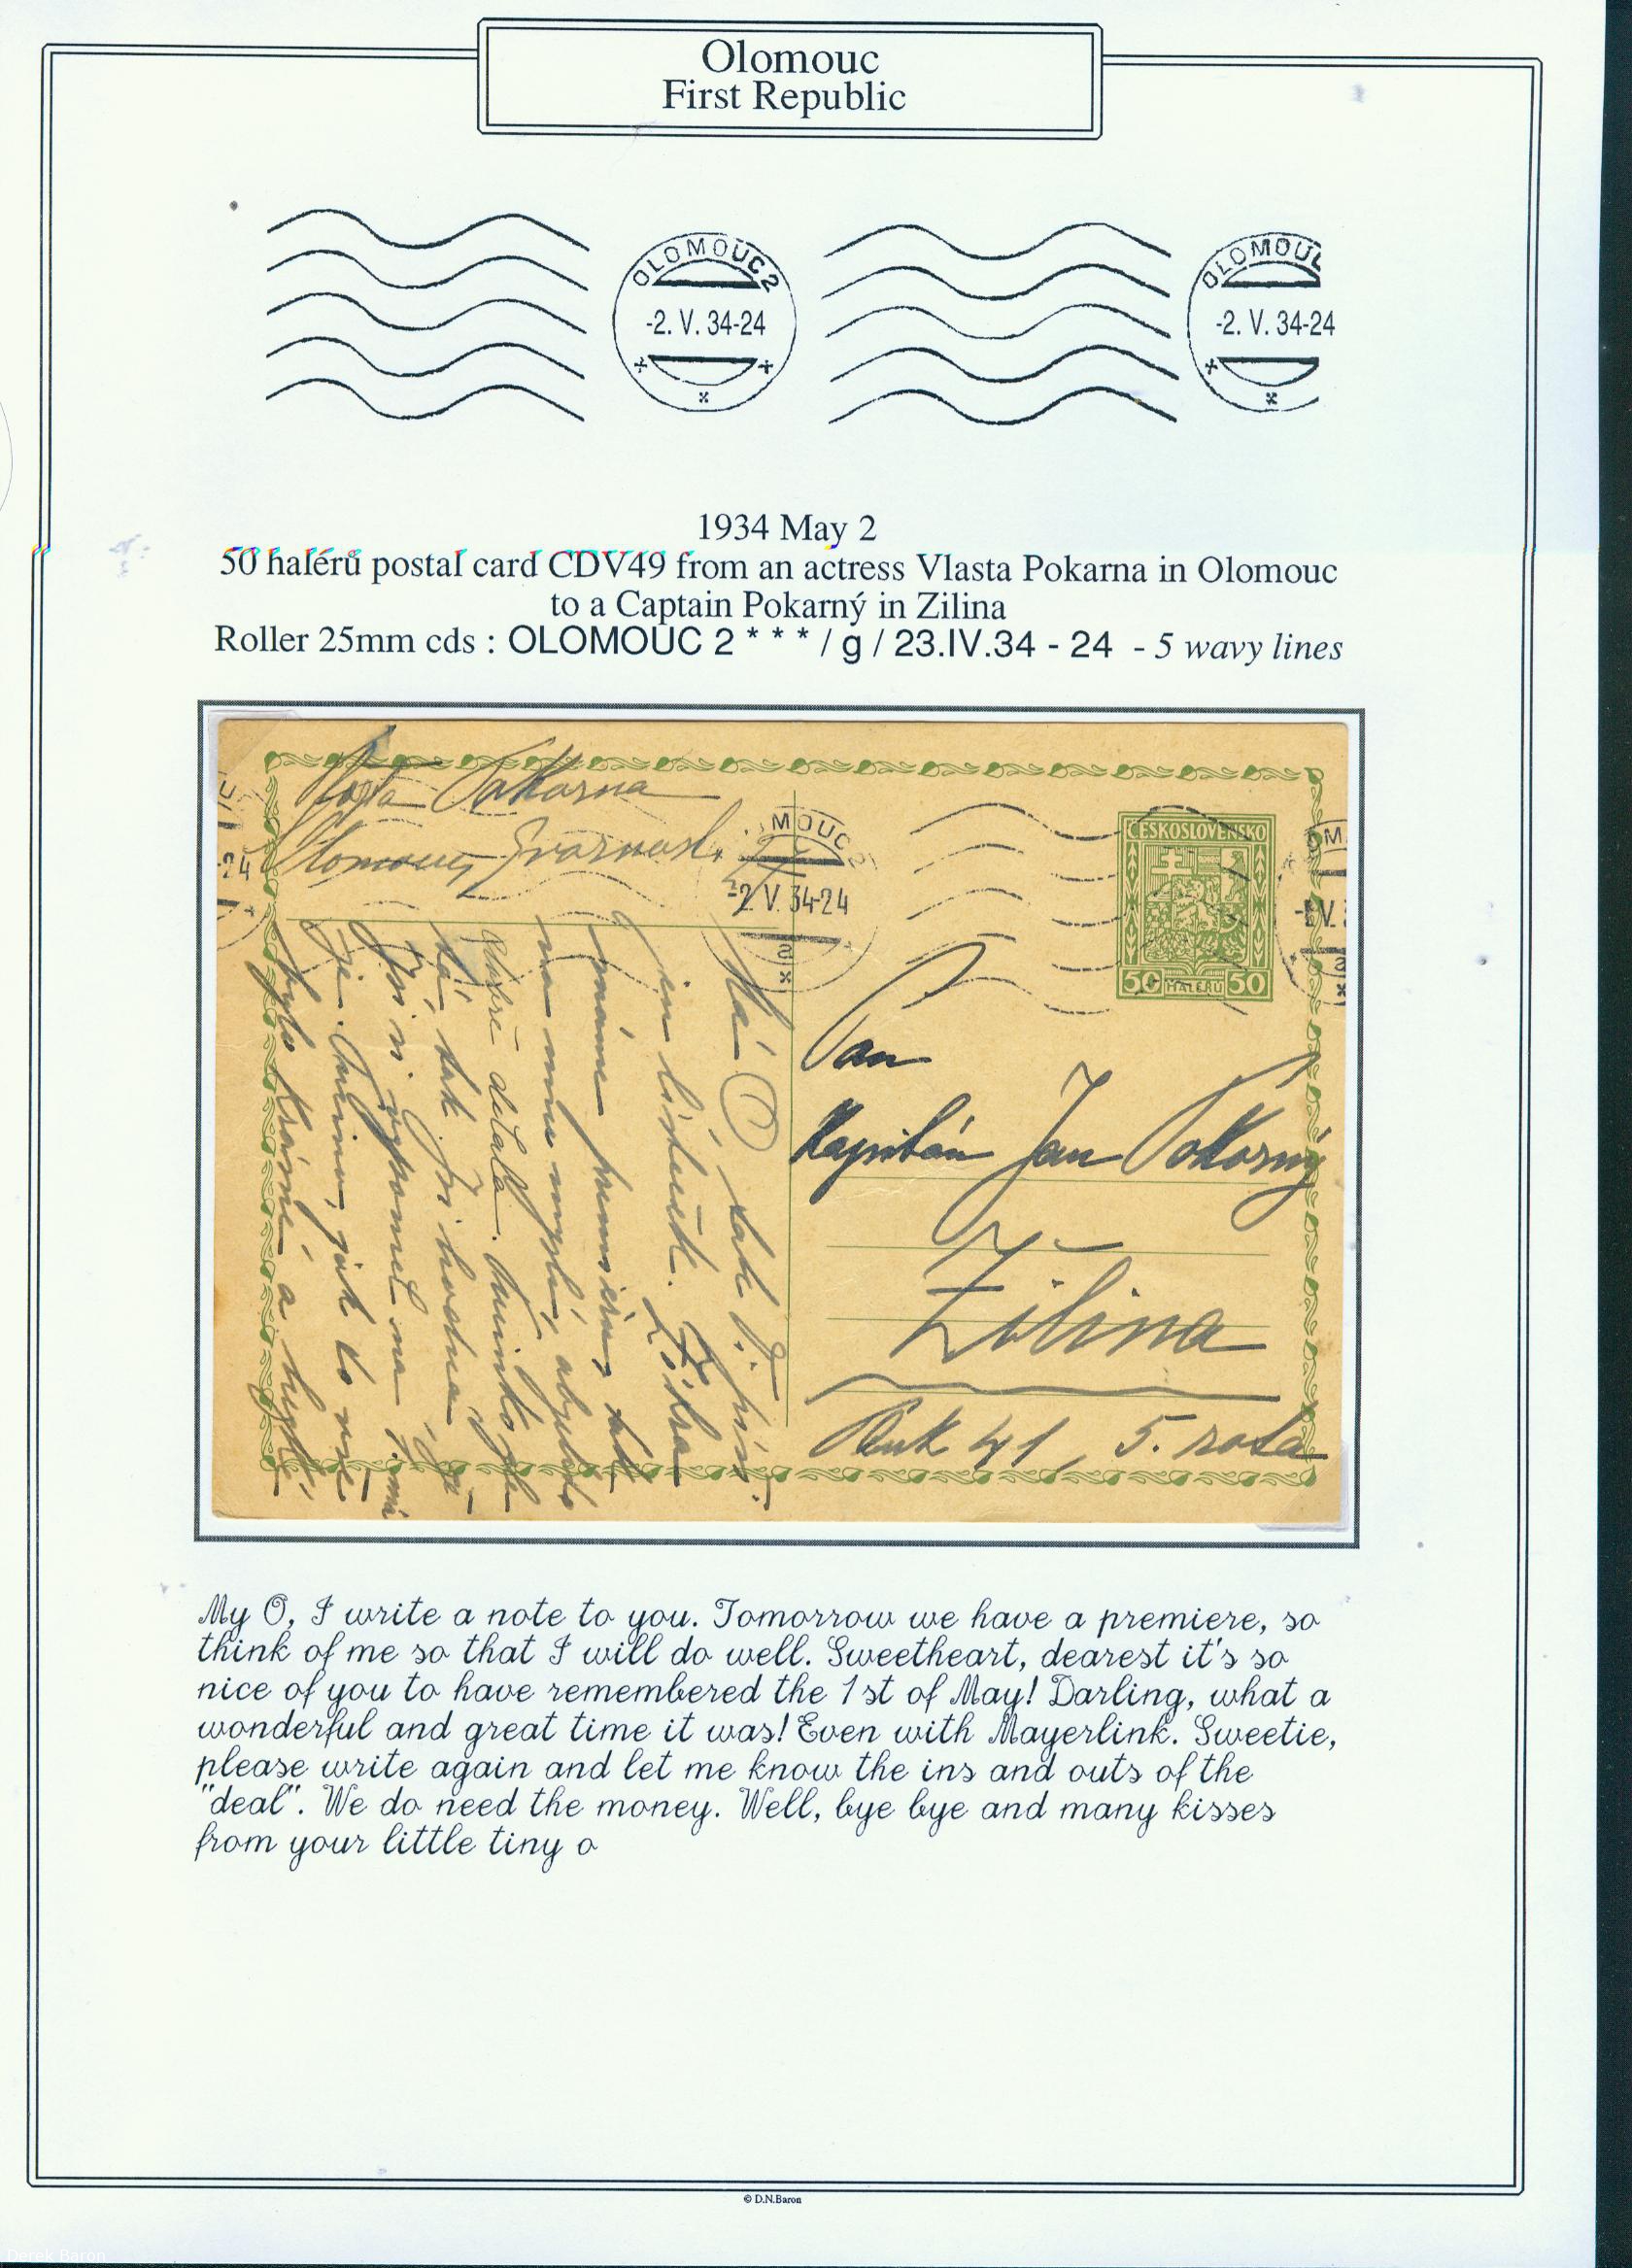 Olomouc
First Republic
OLOMOUC 2
-2. V. 34-24
OLOMOUC
-2. V. 34-24
1934 May 2
50 haléřů postal card CDV49 from an actress Vlasta Pokarna in Olomouc
to a Captain Pokarný in Zilina
Roller 25mm cds : OLOMOUC 2 * * * / g / 23.IV.34 - 24 - 5 wavy lines
Pokorna
Olomouc,
MOUC 2
-2 V. 34-24
24
ČESKOSLOVENSKO
50 HALÉŘŮ 50
OM
V.
Pan
Kapitán Jan Pokorný
Žilina
Pluk 41, 5. rota
tak Ti
lísteček. Zítra
máme premieru, tak
na mnu mysli, abych to
dobře
tak
na
jak to
bylo krásné a
My O, I write a note to you. Tomorrow we have a premiere, so
think of me so that I will do well. Sweetheart, dearest it's so
nice of you to have remembered the 1st of May! Darling, what a
wonderful and great time it was! Even with Mayerlink. Sweetie,
please write again and let me know the ins and outs of the
"deal". We do need the money. Well, bye bye and many kisses
from your little tiny o
© D.N.Baron
Derek Baron